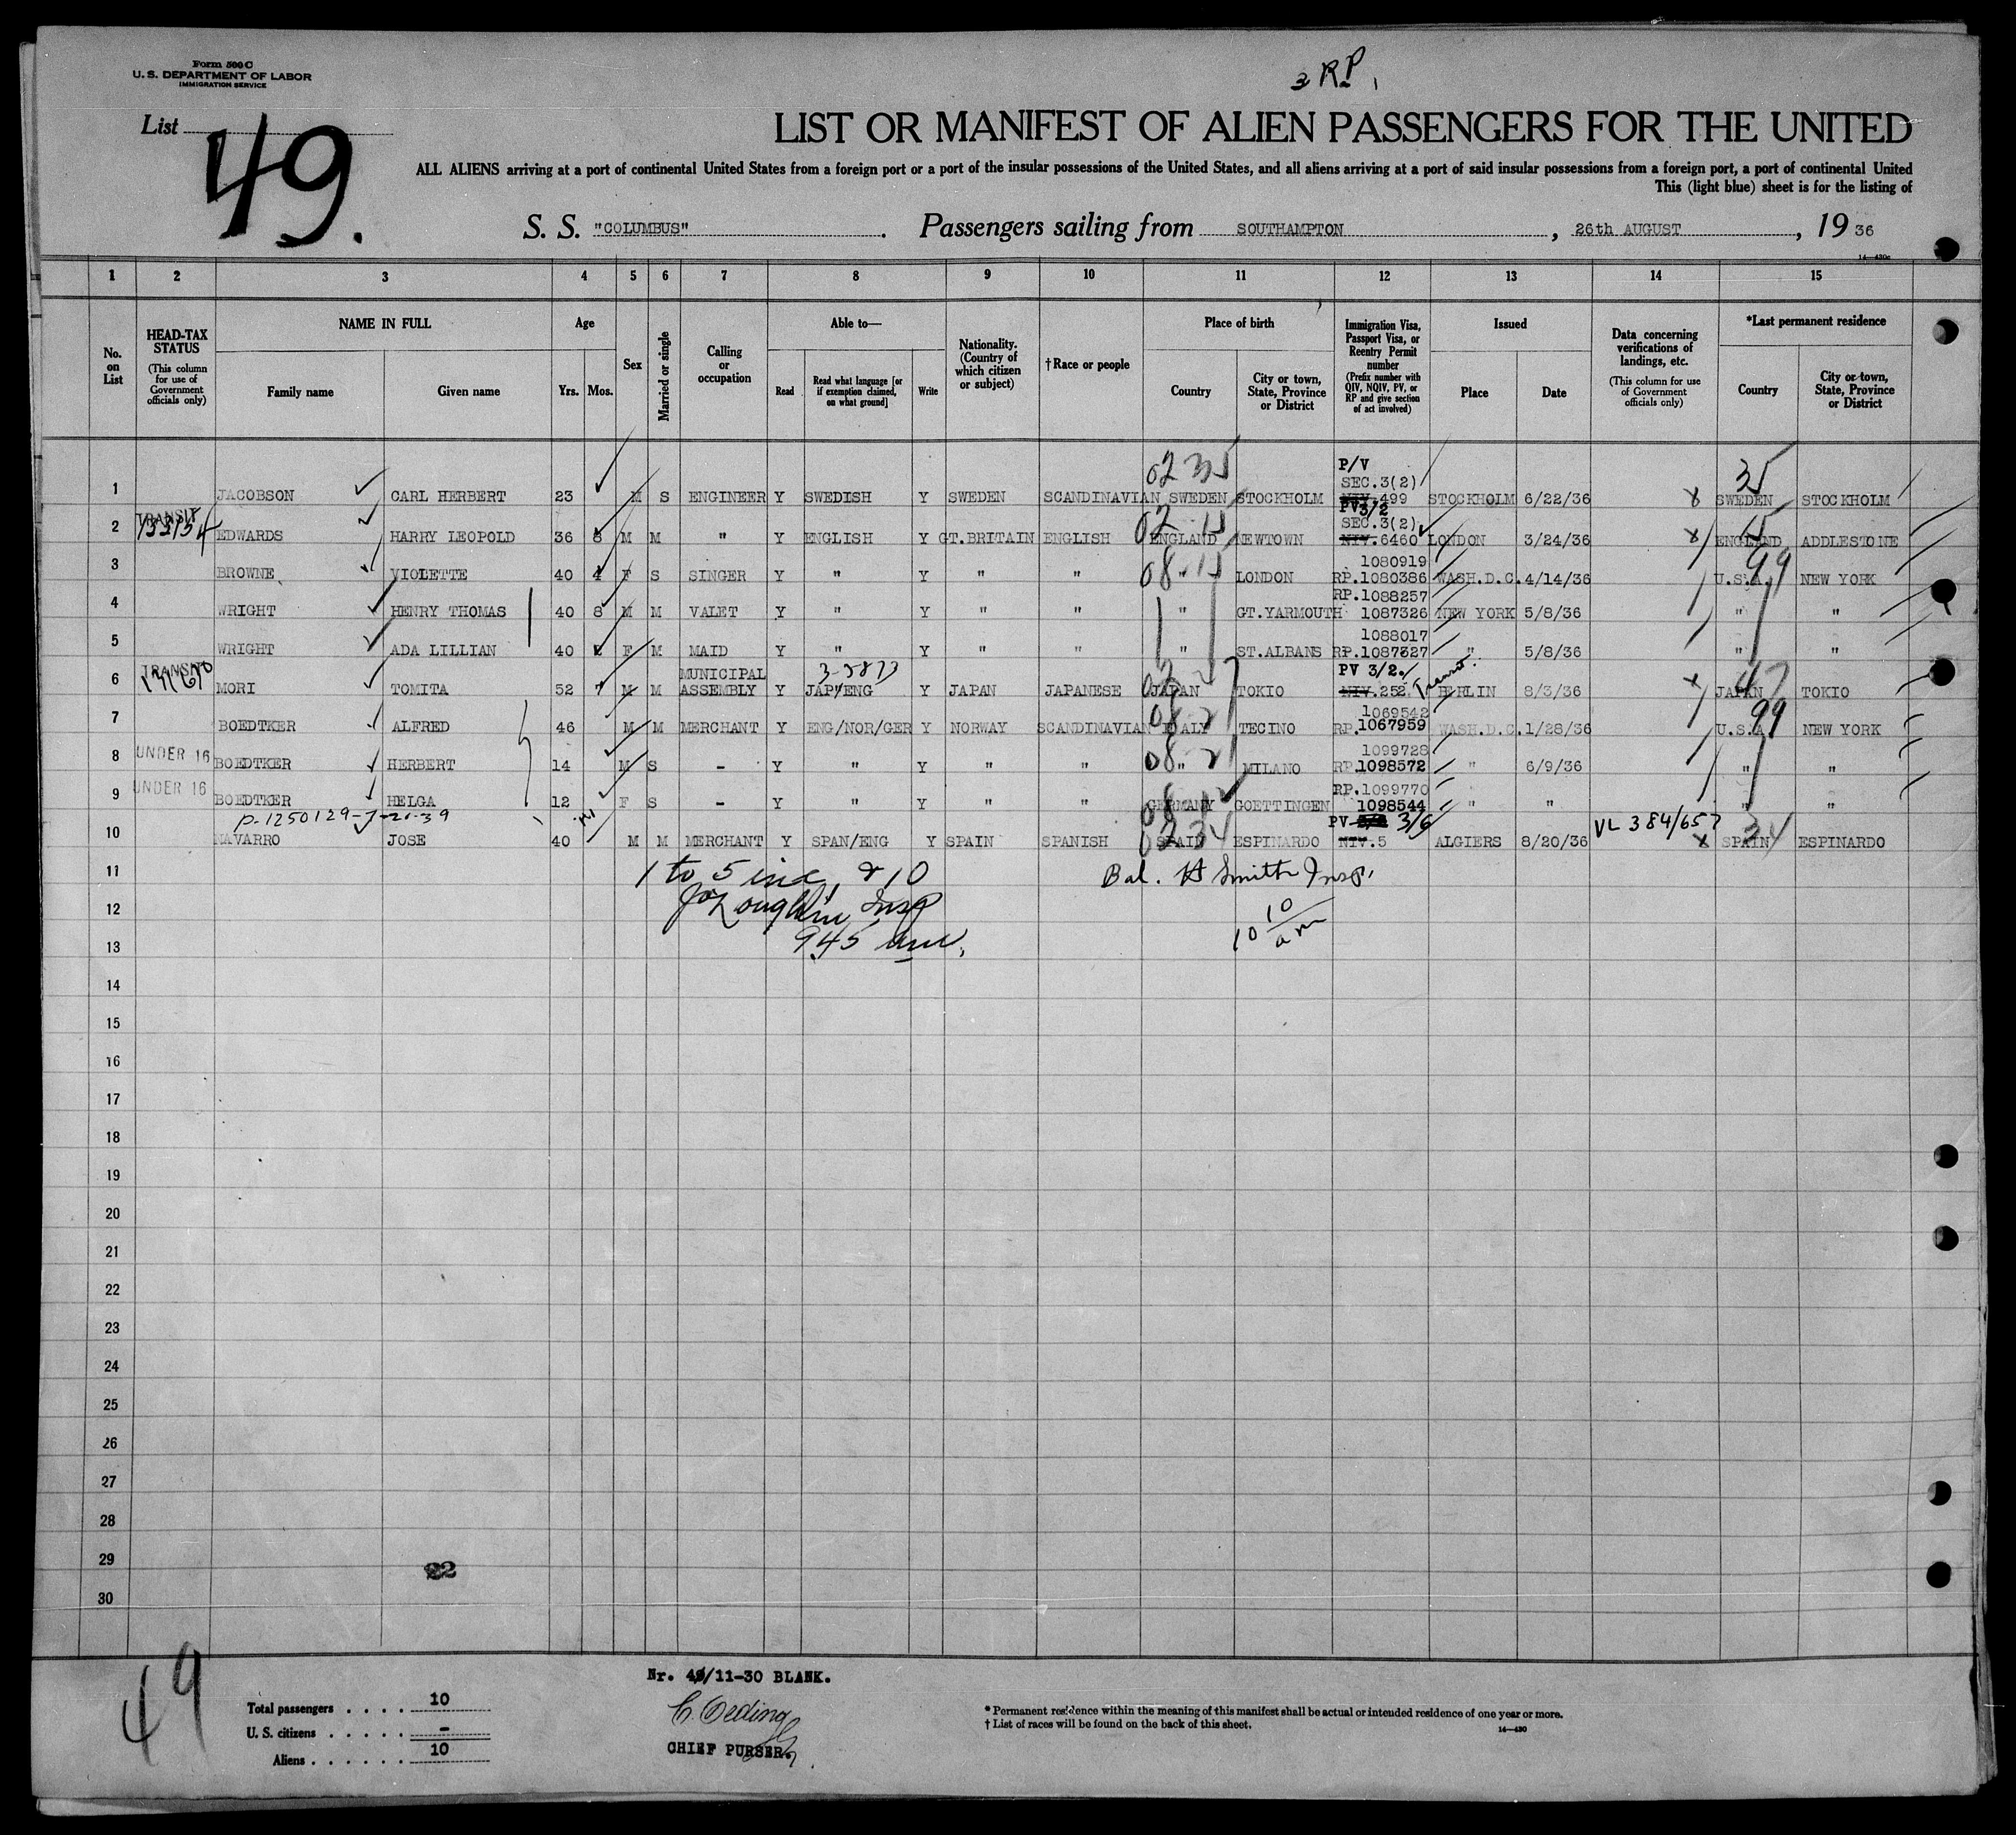 3 R.P.
Form 500 C
U. S. DEPARTMENT OF LABOR
IMMIGRATION SERVICE
List 49.
LIST OR MANIFEST OF ALIEN PASSENGERS FOR THE UNITED
ALL ALIENS arriving at a port of continental United States from a foreign port or a port of the insular possessions of the United States, and all aliens arriving at a port of said insular possessions from a foreign port, a port of continental United
This (light blue) sheet is for the listing of
S. S. "COLUMBUS". Passengers sailing from SOUTHAMPTON, 26th AUGUST, 19 36
14—430c
1 2 3 4 5 6 7 8 9 10 11 12 13 14 15
No. on List
HEAD-TAX STATUS (This column for use of Government officials only)
NAME IN FULL Family name Given name
Age Yrs. Mos.
Sex
Married or single
Calling or occupation
Able to— Read Read what language [or if exemption claimed, on what ground] Write
Nationality. (Country of which citizen or subject)
†Race or people
Place of birth Country City or town, State, Province or District
Immigration Visa, Passport Visa, or Reentry Permit number (Prefix number with QIV, NQIV, PV, or RP and give section of act involved)
Issued Place Date
Data concerning verifications of landings, etc. (This column for use of Government officials only)
*Last permanent residence Country City or town, State, Province or District
02 35 P/V SEC.3(2) 35
1 JACOBSON CARL HERBERT 23 M S ENGINEER Y SWEDISH Y SWEDEN SCANDINAVIAN SWEDEN STOCKHOLM NIV.499 STOCKHOLM 6/22/36 SWEDEN STOCKHOLM
TRANSIT 02 15 PV3/2 SEC.3(2) 15
2 EDWARDS HARRY LEOPOLD 36 8 M M " Y ENGLISH Y GT.BRITAIN ENGLISH ENGLAND NEWTOWN NIV.6460 LONDON 3/24/36 ENGLAND ADDLESTONE
08 15 1080919 99
3 BROWNE VIOLETTE 40 4 F S SINGER Y " Y " " " LONDON RP.1080386 WASH.D.C. 4/14/36 U.S.A. NEW YORK
RP.1088257
4 WRIGHT HENRY THOMAS 40 8 M M VALET Y " Y " " " GT.YARMOUTH 1087326 NEW YORK 5/8/36 " "
1088017
5 WRIGHT ADA LILLIAN 40 F M MAID Y " Y " " " ST.ALBANS RP.1087327 " 5/8/36 " "
TRANSIT MUNICIPAL PV 3/2. Transit. 47
6 MORI TOMITA 52 M M ASSEMBLY Y JAP/ENG Y JAPAN JAPANESE JAPAN TOKIO NIV.252 BERLIN 8/3/36 JAPAN TOKIO
1069542 99
7 BOEDTKER ALFRED 46 M M MERCHANT Y ENG/NOR/GER Y NORWAY SCANDINAVIAN ITALY TECINO RP.1067959 WASH.D.C. 1/28/36 U.S.A. NEW YORK
UNDER 16 08 2 1099728
8 BOEDTKER HERBERT 14 M S - Y " Y " " " MILANO RP.1098572 " 6/9/36 " "
UNDER 16 RP.1099770
9 BOEDTKER HELGA 12 F S - Y " Y " " GERMANY GOETTINGEN 1098544 " " " "
P-1250129-J-21-39 02 34 PV 3/6 VL 384/657 34
10 NAVARRO JOSE 40 M M MERCHANT Y SPAN/ENG Y SPAIN SPANISH SPAIN ESPINARDO NIV.5 ALGIERS 8/20/36 SPAIN ESPINARDO
11 1 to 5 inc, & 10 Bal. H Smith Insp.
12 Insp 10 10/am
13 945 am.
14
15
16
17
18
19
20
21
22
23
24
25
26
27
28
29
30
49
Nr. 49/11-30 BLANK.
Total passengers . . . . . 10
U. S. citizens . . . . . –
Aliens . . . . . . 10
C. Oeding
CHIEF PURSER.
* Permanent residence within the meaning of this manifest shall be actual or intended residence of one year or more.
† List of races will be found on the back of this sheet.
14—430